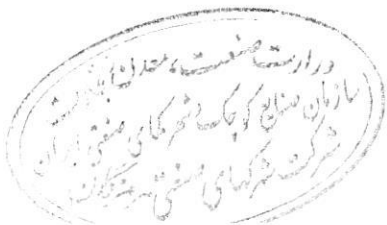 وزارت صنعت، معدن و تجارت
سازمان صنایع کوچک و شهرکهای صنعتی ایران
شرکت شهرکهای صنعتی